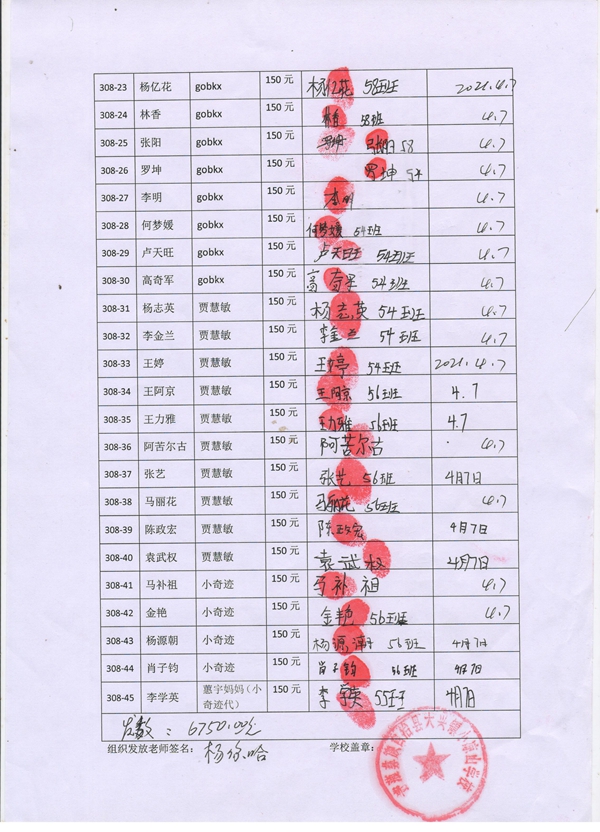 308-23 杨亿花 gobkx 150元 杨亿花 58班 2021.4.7
308-24 林香 gobkx 150元 林香 58班 4.7
308-25 张阳 gobkx 150元 58 4.7
308-26 罗坤 gobkx 150元 罗坤 54 4.7
308-27 李明 gobkx 150元 李明 4.7
308-28 何梦媛 gobkx 150元 何梦媛 54班 4.7
308-29 卢天旺 gobkx 150元 卢天旺 54班 4.7
308-30 高奇军 gobkx 150元 高奇军 54班 4.7
308-31 杨志英 贾慧敏 150元 杨志英 54班 4.7
308-32 李金兰 贾慧敏 150元 李金兰 54班 4.7
308-33 王婷 贾慧敏 150元 王婷 54班 2021.4.7
308-34 王阿京 贾慧敏 150元 王阿京 56班 4.7
308-35 王力雅 贾慧敏 150元 王力雅 56班 4.7
308-36 阿苦尔古 贾慧敏 150元 阿苦尔古 4.7
308-37 张艺 贾慧敏 150元 张艺 56班 4月7日
308-38 马丽花 贾慧敏 150元 马丽花 56班 4.7
308-39 陈政宏 贾慧敏 150元 陈政宏 4月7日
308-40 袁武权 贾慧敏 150元 袁武权 4月7日
308-41 马补祖 小奇迹 150元 马补祖 4.7
308-42 金艳 小奇迹 150元 金艳 56班 4.7
308-43 杨源朝 小奇迹 150元 杨源潮 56班 4月7日
308-44 肖子钧 小奇迹 150元 肖子钧 56班 4月7日
308-45 李学英 蕙宇妈妈（小奇迹代） 150元 李学英 55班 4月7日
总数：6750.00元
组织发放老师签名： 学校盖章：